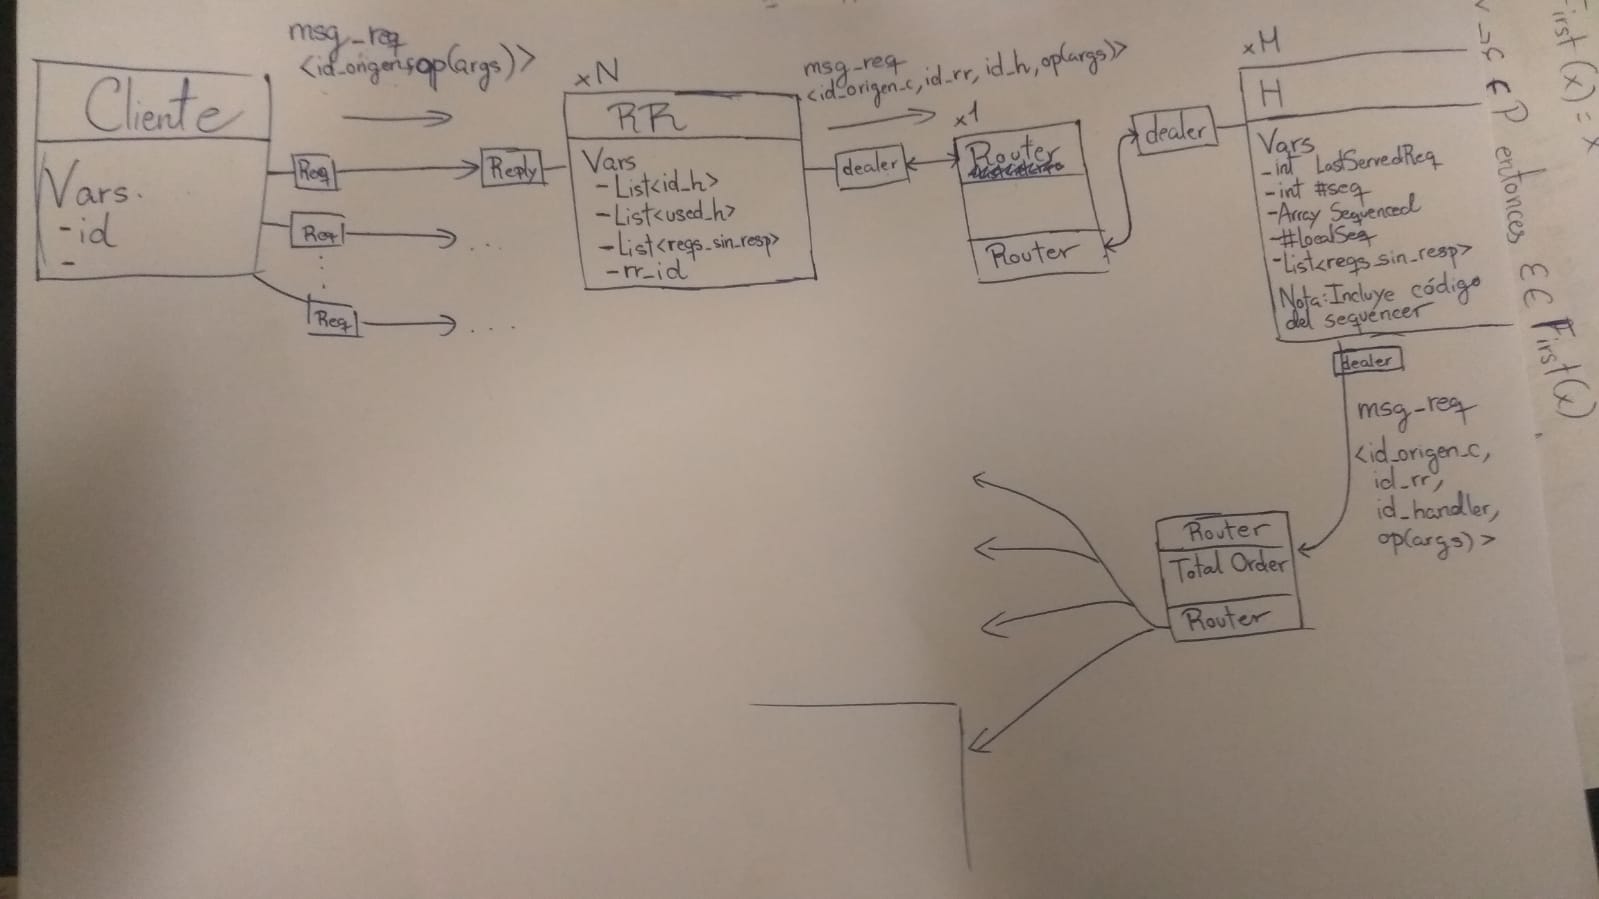 msg_req
<id_origen, op(args)>
Cliente
Vars.
-id
-
Req
Req
Req
Reply
xN
RR
Vars
-List<id_h>
-List<used_h>
-List<reqs_sin_resp>
-rr_id
msg_req
<id_origen_c, id_rr, id_h, op(args)>
dealer
x1
Router
Router
dealer
xM
H
Vars
-int LastServedReq
-int #seq
-Array Sequenced
-#LocalSeq
-List<reqs_sin_resp>
Nota: Incluye código
del sequencer
dealer
msg_req
<id_origen_c,
id_rr,
id_handler,
op(args)>
Router
Total Order
Router
First(x) = x
∈ P entonces ε ∈ First(x)